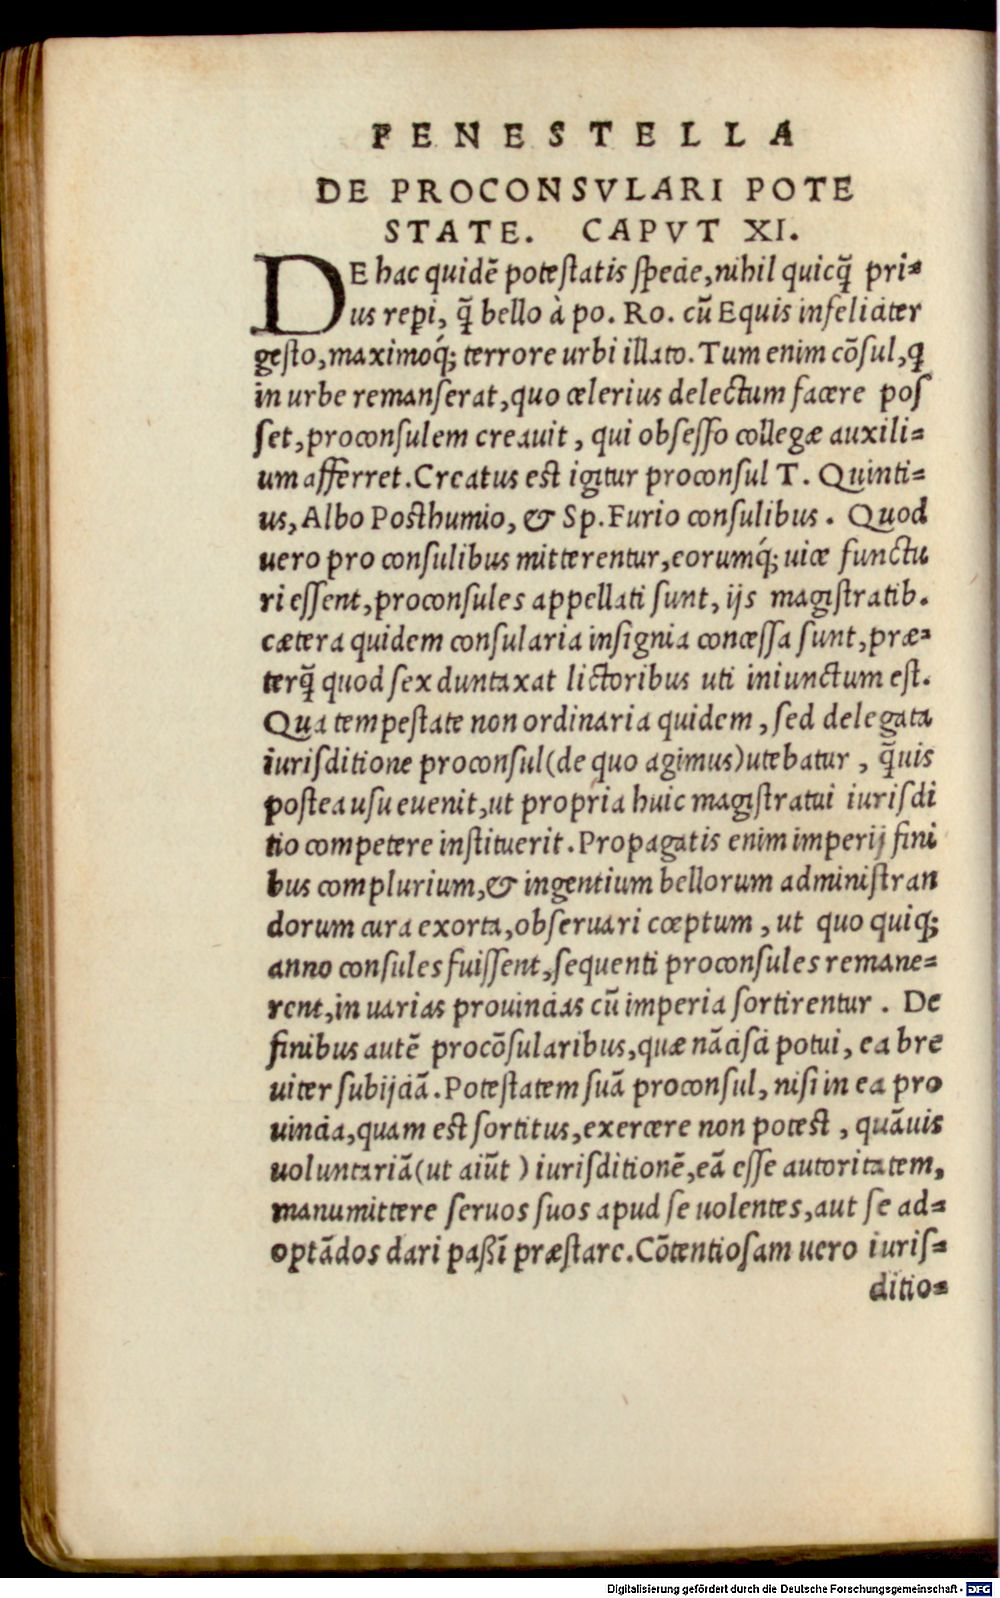 FENESTELLA
DE PROCONSVLARI POTE
STATE. CAPVT XI.
DE hac quidẽ potestatis specie, nihil quicq̃ pri-
us repi, q̃ bello à po. Ro. cũ Equis infeliciter
gesto, maximoq́; terrore urbi illato. Tum enim cõsul, q
in urbe remanserat, quo celerius delectum facere pos
set, proconsulem creauit, qui obsesso collegæ auxili-
um afferret. Creatus est igitur proconsul T. Quinti-
us, Albo Posthumio, & Sp. Furio consulibus. Quod
uero pro consulibus mitterentur, eorumq́; uice functu
ri essent, proconsules appellati sunt, ijs magistratib.
cætera quidem consularia insignia concessa sunt, præ-
terq̃ quod sex duntaxat lictoribus uti iniunctum est.
Qua tempestate non ordinaria quidem, sed delegata
iurisditione proconsul (de quo agimus) utebatur, q̃uis
postea usu euenit, ut propria huic magistratui iurisdi
tio competere instituerit. Propagatis enim imperij fini
bus complurium, & ingentium bellorum administran
dorum cura exorta, obseruari cœptum, ut quo quiq;
anno consules fuissent, sequenti proconsules remane-
rent, in uarias prouincias cũ imperia sortirentur. De
finibus autẽ procõsularibus, quæ nãcisci potui, ea bre
uiter subijciã. Potestatem suã proconsul, nisi in ea pro
uincia, quam est sortitus, exercere non potest, quãuis
uoluntariã (ut aiũt) iurisditionẽ, eã esse autoritatem,
manumittere seruos suos apud se uolentes, aut se ad-
optãdos dari paßĩ præstare. Cõtentiosam uero iuris-
ditio-
Digitalisierung gefördert durch die Deutsche Forschungsgemeinschaft - DFG